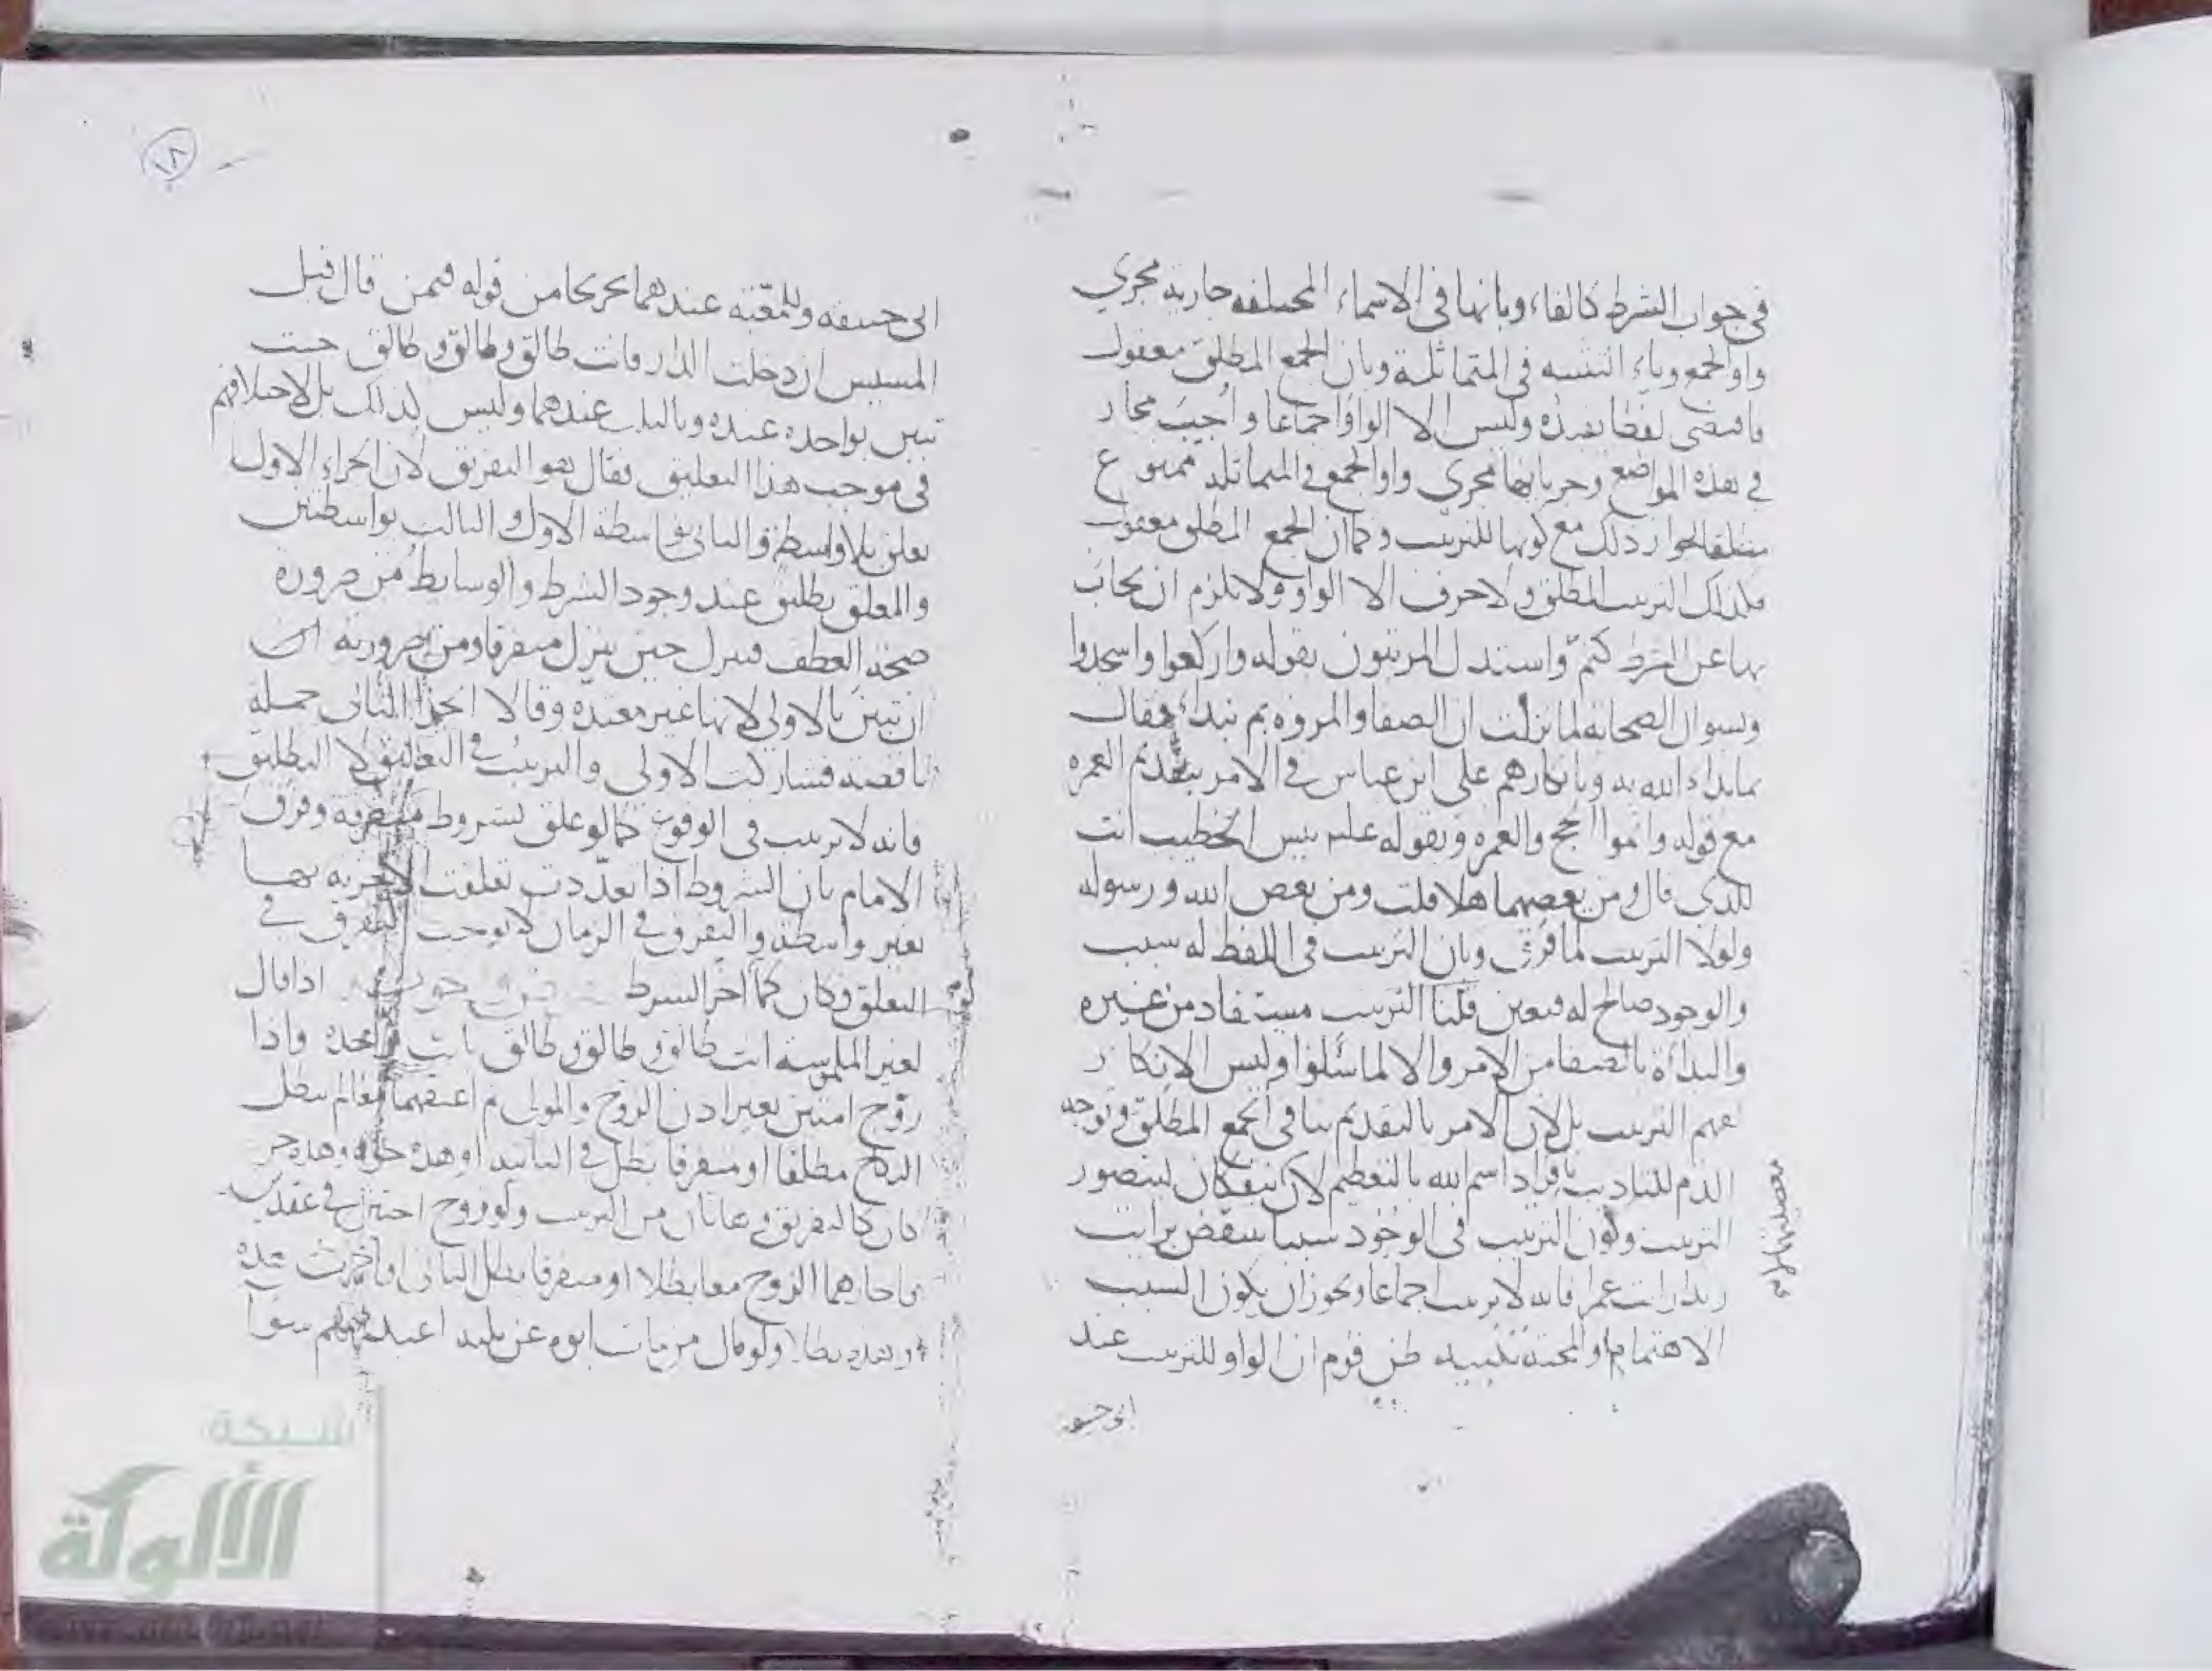 في جواب الشرط كالفاء وبانها في الاسماء المختلفة جارية مجري
واو الجمع وياء التثنية في المتماثلة وبان الجمع المطلق معقول
فاقتضى لفظا يفيده وليس الا الواو اجماعا واُجيب بمجاز
في هذه المواضع وجريانها مجري واو الجمع في المتماثلة ممنوع
مطلقا لجواز ذلك مع كونها للترتيب وكما ان الجمع المطلق معقول
فكذلك الترتيب المطلق ولا حرف الا الواو ولا يلزم ان يجاب
بها عن الشرط كثمّ واستدل المرتبون بقوله واركعوا واسجدوا
وبسوال الصحابة لما نزلت ان الصفا والمروة بم نبداء فقال
بما بداء الله به وبانكارهم على ابن عباس في الامر بتقديم العمرة
مع قوله واتموا الحج والعمرة وبقوله علىه بيس الخطيب انت
للذي قال ومن يعصهما هلا قلت ومن يعص الله ورسوله
ولولا الترتيب لما فرق وبان الترتيب في اللفظ له سبب
والوجود صالح له فيعين قلنا الترتيب مستفاد من غيره
والبدأة بالصفا من الامر والا لما سُئلوا وليس الانكار
لفهم الترتيب بل لان الامر بالتقديم ينافي الجمع المطلق وتوجه
الذم للتاديب بافراد اسم الله بالتعظيم لان يتفكان ليتصور
الترتيب وكون الترتيب في الوجود سببا ينتقض برايت
زيدا رايت عمرا فانه لا ترتيب اجماعا ويجوز ان يكون السبب
الاهتمام او المحبة تنبيه ظن قوم ان الواو للترتيب عند
ابي حنيفه
١٨
ابي حنيفه وللمعيّة عندهما تخريجا من قوله فيمن قال قبل
المسيس ان دخلت الدار فانت طالق وطالق وطالق حيث
تبين بواحدة عنده وبالثلث عندهما وليس كذلك بل لاختلافهم
في موجب هذا التعليق فقال هو التفريق لان الجزاء الاول
تعلق بلا واسطة والثاني بواسطة الاول والثالث بواسطتين
والمعلق يطلق عند وجود الشرط والوسايط من ضرورة
صحة العطف فينزل حين ينزل متفرقا ومن ضرورته
ان تبين بالاولى لانها غير معتدة وقالا الثاني جملة
ناقصة فشاركت الاولى والترتيب في التعليق لا التطليق
فانه لا ترتيب في الوقوع كما لو علق بشروط متفرقة وفرق
الامام بان الشروط اذا تعدّدت تعلقت الاجزية بها
بغير واسطة والتفرق في الزمان لا يوجب التفريق في
التعلق وكان كما اخر الشرط اذا قال
لغير الملموسة انت طالق وطالق وطالق بانت بواحدة واذا
زوّج امتين بغير اذن الزوج والمولى ثم اعتقهما معا لم يبطل
النكاح مطلقا او متفرقا بطل في الثانية او هذه حرة وهذه حرة
كان كالتفريق وهاتان من الترتيب ولو زوج اختين في عقدين
فاجازهما الزوج معا بطلا او متفرقا بطل الثاني فاجزت هذه
وهذه بطلا ولو قال من مات ابوه عن ثلثة اعبد قيمتهم سوا
شبكة
الألوكة